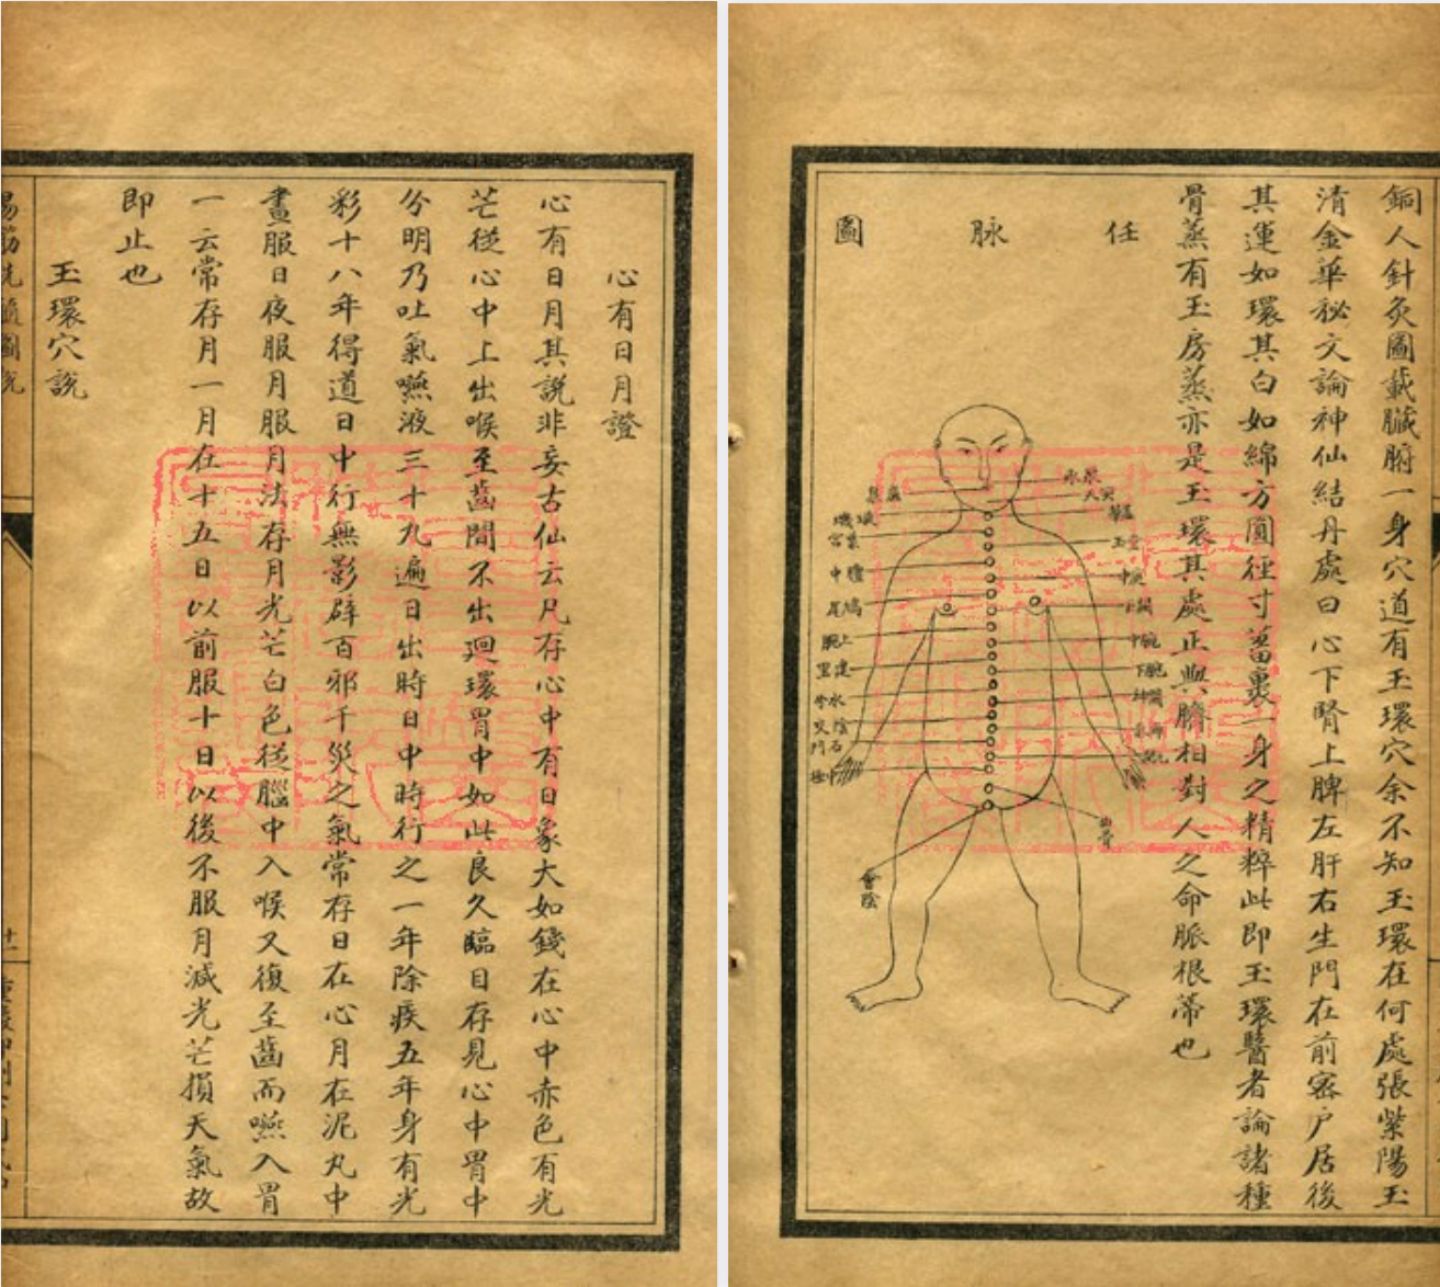 心有日月證
心有日月其說非妄古仙云凡存心中有日象大如錢在心中赤色有光
芒從心中上出喉至齒間不出廻環胃中如此良久臨目存見心中胃中
分明乃吐氣嚥液三十九遍日出時日中時行之一年除疾五年身有光
彩十八年得道日中行無影辟百邪千災之氣常存日在心月在泥丸中
晝服日夜服月服月法存月光芒白色從腦中入喉又復至齒而嚥入胃
一云常存月一月在十五日以前服十日以後不服月減光芒損天氣故
即止也
玉環穴說
銅人針灸圖載臟腑一身穴道有玉環穴余不知玉環在何處張紫陽玉
清金華秘文論神仙結丹處曰心下腎上脾左肝右生門在前密户居後
其運如環其白如綿方圓徑寸蓄裏一身之精粹此即玉環醫者論諸種
骨蒸有玉房蒸亦是玉環其處正與臍相對人之命脈根蒂也
任脉圖
天突
璇璣
華蓋
紫宮
玉堂
膻中
中庭
鳩尾
上脘
中脘
建里
下脘
水分
陰交
石門
中極
曲骨
會陰